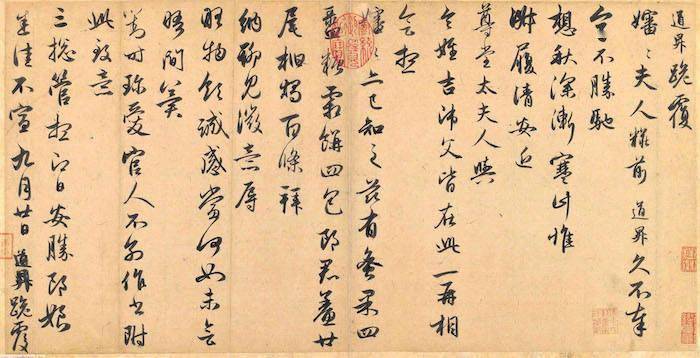 道昇跪覆
嬸嬸夫人粧前道昇久不奉
字不勝馳
想秋深漸寒計惟
淑履清安近
尊堂太夫人與
令姪吉師父皆在此一再相
會想
嬸嬸亦已知之茲有蜜果四
盝糖霜餅四包郎君鯗廿
尾柏燭百條拜
納聊見微意辱
物領誠感當何如未會
晤間冀
時珍愛官人不別作書附
此致意
三總管想即日安勝郎娘
佳不宣九月廿日道昇跪覆